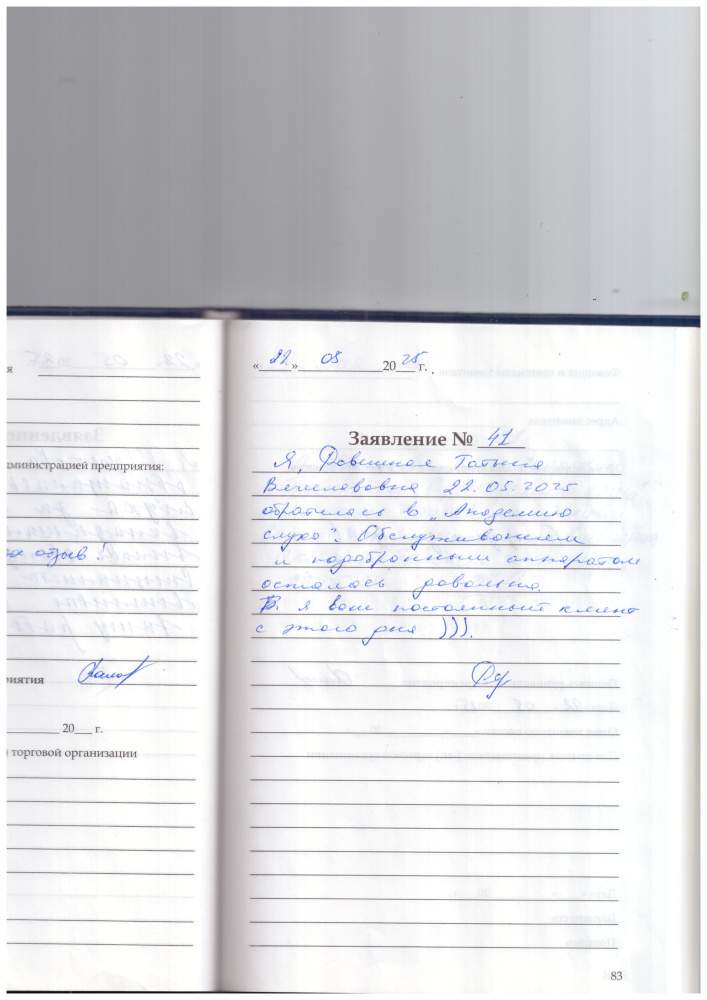 я
администрацией предприятия:
отзыв!
приятия
20 г.
й торговой организации
« 22 » 05 20 25 г.
Заявление № 41
Я, Татьяна
Вячеславовна 22.05.2025
обратилась в „Академию
слуха". Обслуживанием
и подобранным аппаратом
осталась довольна.
я ваш постоянный клиент
с этого дня ))).
83